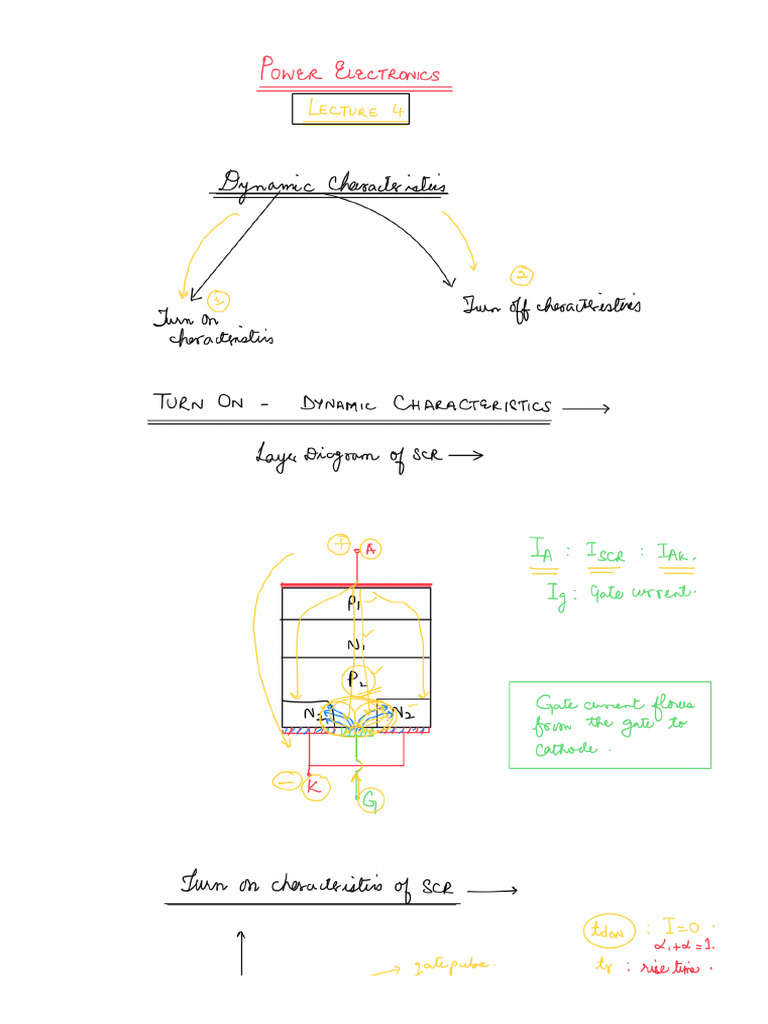 POWER ELECTRONICS
LECTURE 4
Dynamic Characteristics
1
2
Turn on
characteristics
Turn off characteristics
TURN ON - DYNAMIC CHARACTERISTICS →
Layer Diagram of SCR →
+ A
I_A : I_SCR : I_AK.
Ig : Gate current.
P1
N1
P2
N2 N2
Gate current flows
from the gate to
cathode.
- K
G
Turn on characteristics of SCR →
: I=0.
α1+α=1.
→ gate pulse.
tr : rise time.